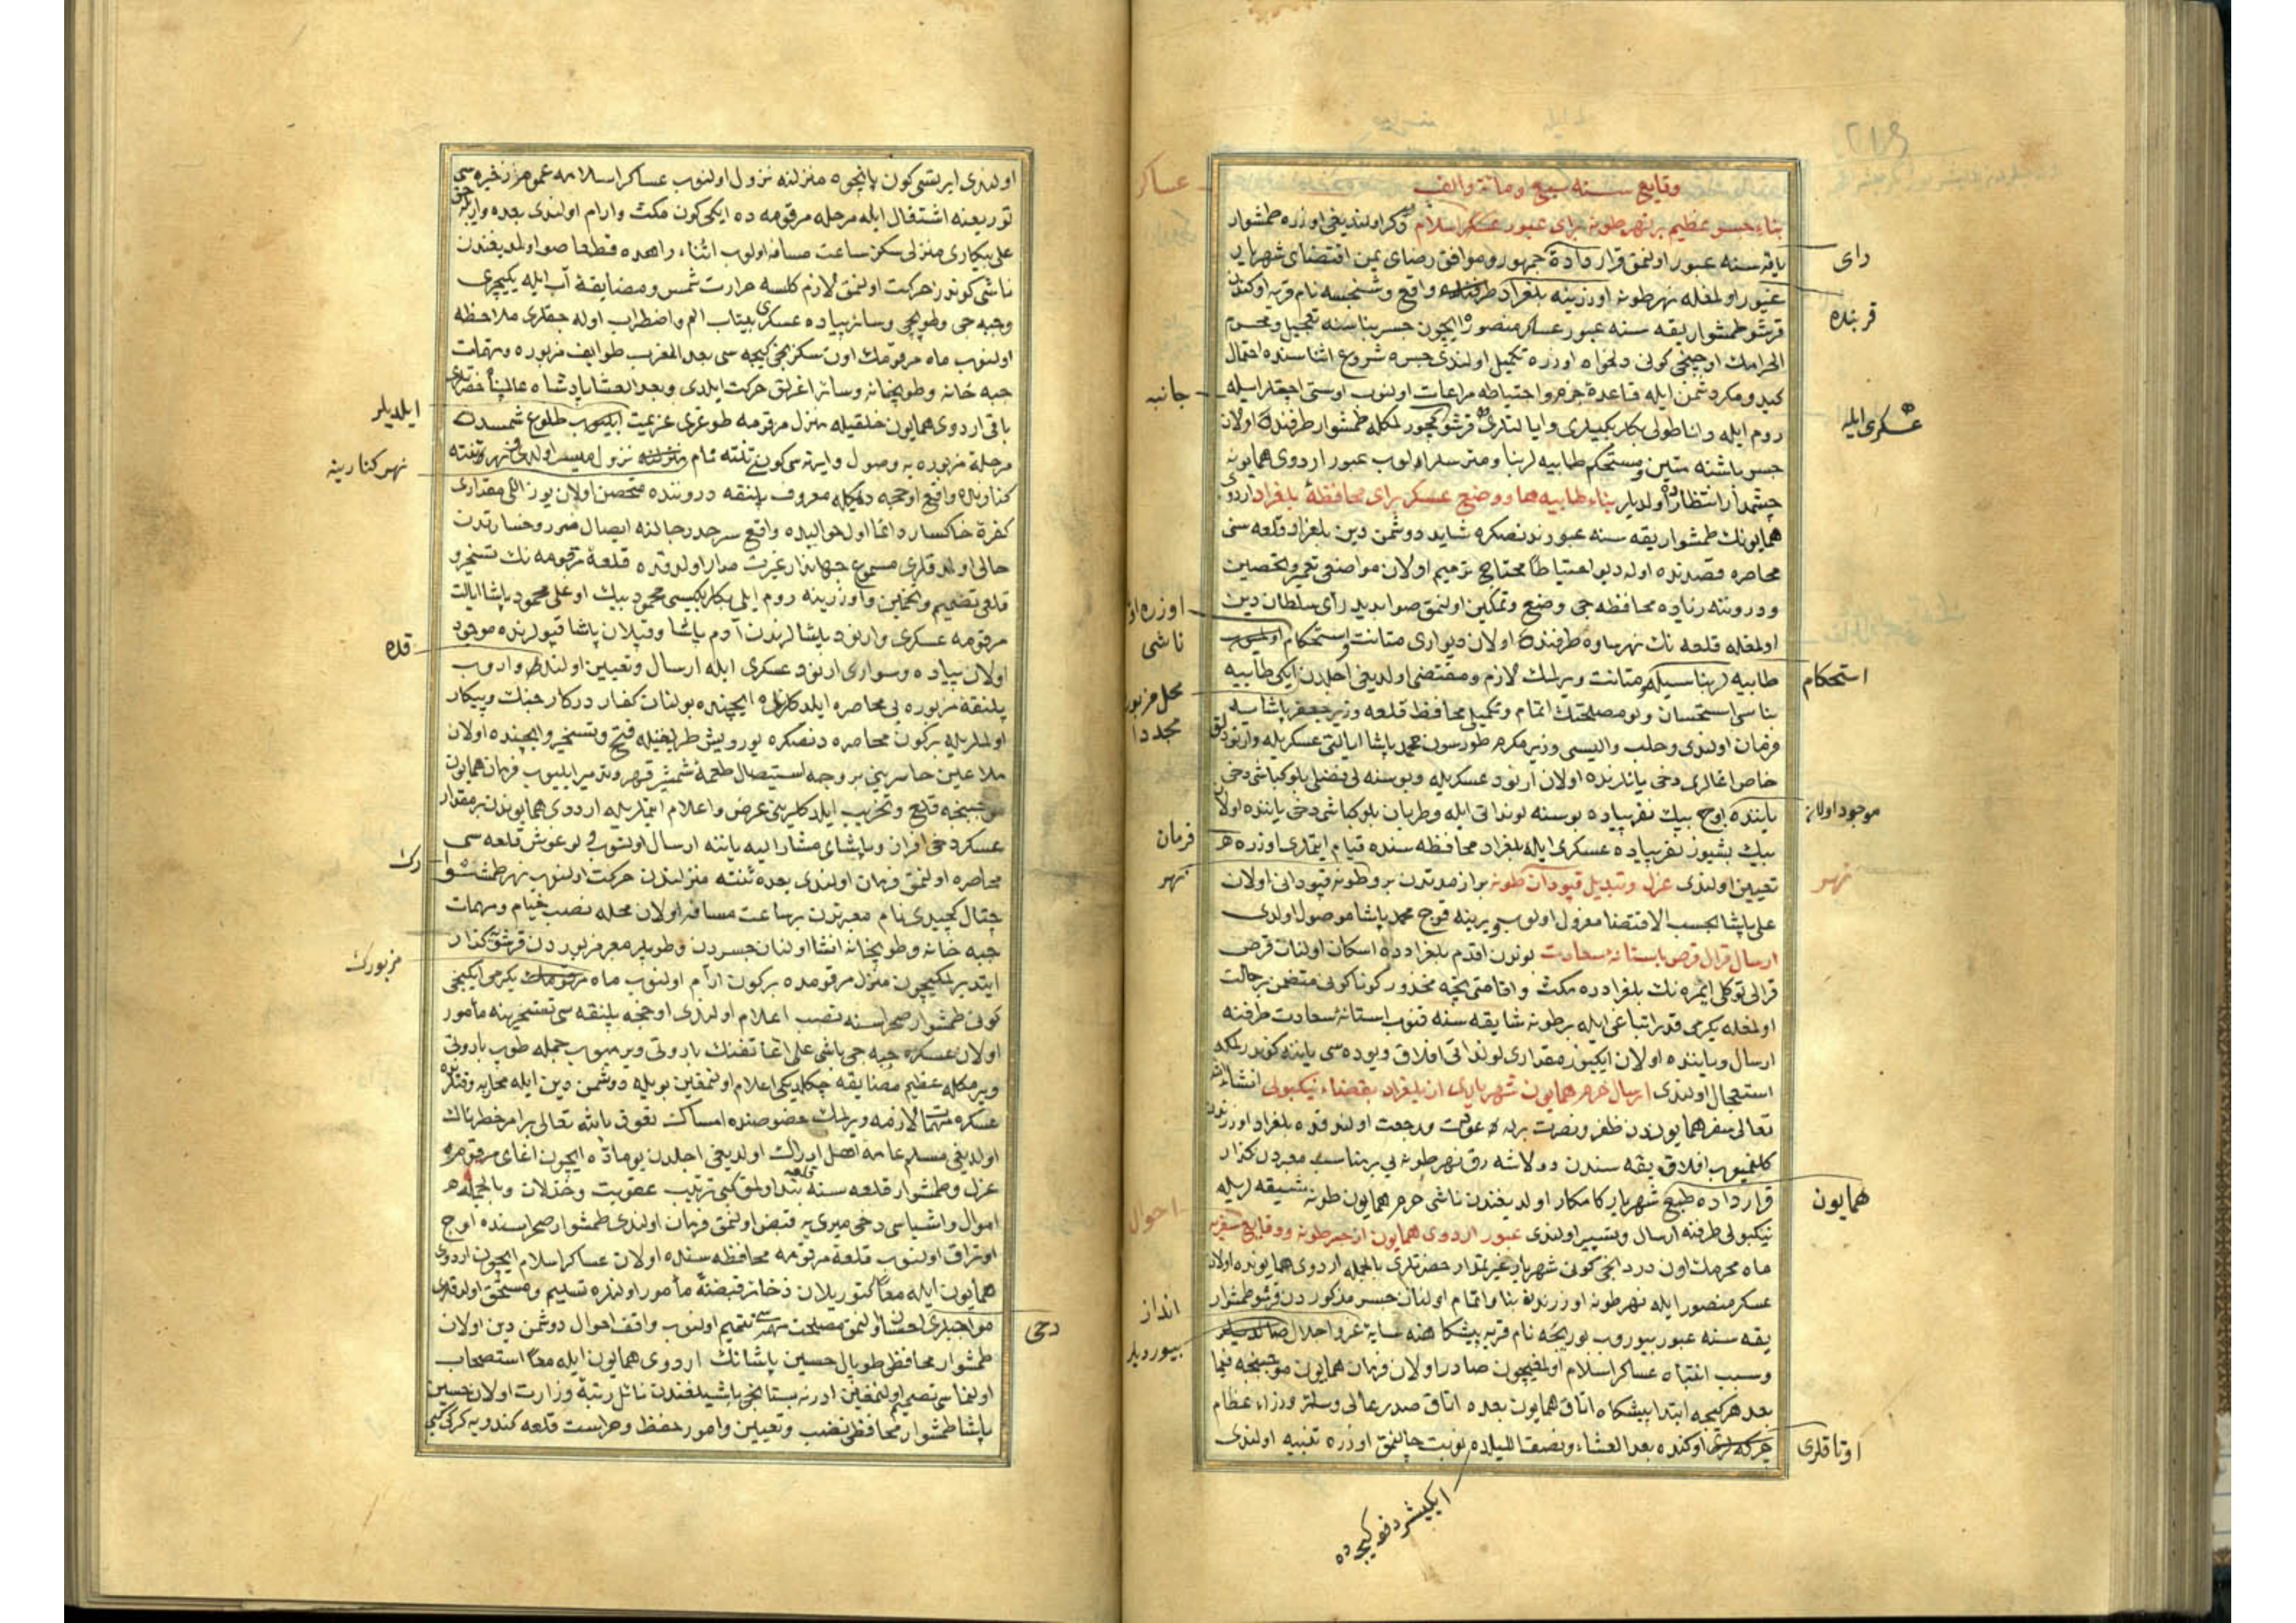 وقایع سنه سبع و مأئة والف
بناء جسر عظیم بر نهر طونه برای عبور عسکر اسلام ذکر اولندیغی اوزره طمشوار
یقه سنه عبور اولنمق قرار دادهٔ جمهور و موافق رضای یمن اقتضای شهریاری
غیور اولمغله نهر طونه اوزرینه بلغراد طرفنده واقع نام قریه اوکندن
قرشو طمشوار یقه سنه عبور عساکر منصوره ایچون جسر بناسنه تعجیل و محرم
الحرامك اوچنجی کونی دلخواه اوزره تکمیل اولندی جسره شروع اثناسنده احتمال
کید و مکر دشمن ایله قاعدهٔ حزم و احتیاطه مراعات اولنوب
روم ایله و اناطولی بکلربکیلری و ایالتلری قرشو کچورلمکله طمشوار طرفنده اولان
جسر باشنه متین و مستحکم طابیه لر بنا و متریسلر اولوب عبور اردوی همایونه
چشمدار انتظار اولدیلر بناء طابیه ها و وضع عسکر برای محافظهٔ بلغراد اردوی
همایونك طمشوار یقه سنه عبورندنصکره شاید دوشمن دین بلغراد قلعه سنی
محاصره قصدنده اوله دیو احتیاطاً محتاج ترمیم اولان مواضعی تعمیر و تحصین
و درونته زیاده محافظه جی وضع و تمکین اولنمق صوابدید رأی سلطان دین
اولمغله قلعه نك نهر صاوه طرفنده اولان دیواری متانت و استحکام
طابیه لر بناسیله متانت ویرلمك لازم و مقتضی اولدیغی اجلدن ایکی طابیه
بناسی استحسان و بو مصلحتك اتمام و تکمیلی محافظ قلعه وزیر جعفر پاشایه
فرمان اولندی و حلب والیسی وزیر مکرم طورسون محمد پاشا ایالتی عسکریله
خاص اغالری دخی یانلرنده اولان ارنود عسکریله و بوسنه لی فضلی بلوکباشی دخی
یاننده اوچ بیك نفر پیاده بوسنه لونداتی ایله و طربان بلوکباشی دخی یاننده اولان
بیك بشیوز نفر پیاده عسکری ایله بلغراد محافظه سنده قیام ایتمری اوزره
تعیین اولندی عزل و تبدیل قپودان طونه براز مدتدن برو طونه قپودانی اولان
علی پاشا بحسب الاقتضا معزول اولوب یرینه قوج محمد پاشا موصول اولدی
ارسال قرال قرص باستانهٔ سعادت بوندن اقدم بلغرادده اسکان اولنان قرص
قرالی توکلی ایمره نك بلغرادده مکث و اقامتی نچه محذور کوناکونی متضمن بر حالت
اولمغله یکرمی قدر اتباعی ایله بر طونه شایقه سنه قنوب استانهٔ سعادت طرفنه
ارسال و یاننده اولان ایکیوز مقداری لونداتی افلاق ویوده سی یاننه کوندرلمکه
استعجال اولندی ارسال حرم همایون شهریاری از بلغراد بقضاء نیکبولی انشاء الله
تعالی سفر همایوندن ظفر و نصرت برله عودت و رجعت اولندقده بلغراد اوزرندن
کلنمیوب افلاق یقه سندن دولاشه رق نهر طونه یی بر مناسب معبردن کذار
قرارداده طبع شهریار کامکار اولدیغندن ناشی حرم همایون طونه شیقه لریله
نیکبولی طرفنه ارسال و تسییر اولندی عبور اردوی همایون از جسر طونه و وقایع سفریه
ماه محرمك اون دردنجی کونی شهریار غیرتمدار حضرتلری بالجمله اردوی همایونده اولان
عسکر منصور ایله نهر طونه اوزرنده بنا و اتمام اولنان جسر مذکوردن قرشو طمشوار
یقه سنه عبور بیوروب بوریجه نام قریه پیشکاهنه سایهٔ عز و اجلال
و سبب انتباه عساکر اسلام اولمغیچون صادر اولان فرمان همایون موجبنجه فیما
بعد هر کیجه ابتدا پیشکاه اتاق همایون بعده اتاق صدر عالی و سائر وزراء عظام
اوکنده بعد العشاء و نصف اللیلده نوبت چالنمق اوزره تنبیه اولندی
رای
قربنده
عسکری ایله
استحکام
موجود اولان
نهر
همایون
اوتاقلری
عساکر
جانبه
اوزره اولمق
ناشی
محل مزبور
مجددا
فرمان
نهر
احوال
انداز
بیوردیلر
ایکیشر دفعه کیجه ده
اولندی ایرتسی کون پانچوه منزلنه نزول اولنوب عساکر اسلامه عموم ذخیره سی
توزیعنه اشتغال ایله مرحله مرقومه ده ایکی کون مکث و ارام اولندی بعده
علی بیکاری منزلی سکز ساعت مسافه اولوب اثناء راهده قطعا صو اولمدیغندن
ناشی کوندز حرکت اولنمق لازم کلسه حرارت شمس و مضایقهٔ آب ایله یکیچری
و جبه جی و طوپجی و سائر پیاده عسکری بیتاب الم و اضطراب اوله جقلری ملاحظه
اولنوب ماه مرقومك اون سکزنجی کیجه سی بعد المغرب طوایف مزبوره و مهمات
جبه خانه و طوپخانه و سائر اغرلق حرکت ایلدی و بعد العشا پادشاه عالمپناه حضرتلری
باقی اردوی همایون خلقیله منزل مرقومه طوغری عزیمت ایلیوب طلوع شمسده
مرحلهٔ مزبوره یه وصول و ایرتسی کون تنته نام نزول میسر اولدی نهر تنته
کنارنده واقع اوججه دیمکله معروف پلنقه دروننده متحصن اولان یوز اللی مقداری
کفرهٔ خاکسار دائما اول حوالیده واقع سرحد رجالنه ایصال ضرر و خسارتدن
خالی اولمدقلری مسموع جهاندار غیرتمدار اولدقده قلعهٔ مرقومه نك تسخیر و
قلعی تصمیم و تخمین و اوزرینه روم ایلی بکلربکیسی محمود بیك اوغلی محمود پاشا ایالت
مرقومه عسکری و ارنود پاشالرندن آدم پاشا و قپلان پاشا قپولرنده موجود
اولان پیاده و سواری ارنود عسکری ایله ارسال و تعیین اولندیلر واروب
پلنقهٔ مزبوره یی محاصره ایلدکلرنده ایچنده بولنان کفار درکار جنك و پیکار
اولملریله برکون محاصره دنصکره یورویش طریقیله فتح و تسخیر و ایچنده اولان
ملاعین خاسرینی بر وجه استیصال طعمهٔ شمشیر قهر و تدمیر ایلیوب فرمان همایون
موجبنجه قلع و تخریب ایلدکلرینی عرض و اعلام ایتملریله اردوی همایوندن بر مقدار
عسکر دخی افراز و پاشای مشار الیه یاننه ارسال اولنوب لوغوش قلعه سی
محاصره اولنمق فرمان اولندی بعده تنته منزلندن حرکت اولنوب نهر طمشك
چتال کچیدی نام معبرندن بر ساعت مسافه اولان محله نصب خیام و مهمات
جبه خانه و طوپخانه انشا اولنان جسردن و طوپلر معبر مزبوردن قرشو کذار
ایتدیرلمکیچون منزل مرقومده برکون آرام اولنوب ماه مرقومك یکرمی ایکنجی
کونی طمشوار صحراسنه نصب اعلام اولندی اوججه پلنقه سی تسخیرینه مأمور
اولان عسکره جبه جی باشی علی اغا تفنك باروتی ویرمیوب جمله طوپ باروتی
ویرمکله عظیم مضایقه چکلدیکی اعلام اولنمغین بویله دوشمن دین ایله محاربه وقتلرنده
عسکره مهمات لازمه ویرلمك خصوصنده امساك نعوذ بالله تعالی بر امر خطرناك
اولدیغی مسلم عامهٔ اهل ادراك اولدیغی اجلدن بو ماده ایچون اغای مرقومه
عزل و طمشوار قلعه سنه بند اولنمق کبی ترتیب عقوبت و خذلان و بالجمله
اموال و اشیاسی دخی میری یه قبض اولنمق فرمان اولندی طمشوار صحراسنده اوچ
اوتراق اولنوب قلعهٔ مرقومه محافظه سنده اولان عساکر اسلام ایچون اردوی
همایون ایله معاً کتوریلان ذخائر قبضنه مأمور اولنلره تسلیم و مستحق اولدقلری
مواجبلری احسان اولنمق مصلحت مهمه سی تتمیم اولنوب واقف احوال دوشمن دین اولان
طمشوار محافظی طوپال حسین پاشانك اردوی همایون ایله معاً استصحاب
اولنماسی تصمیم اولنمغین ادرنه بستانجی باشیلغندن نائل رتبهٔ وزارت اولان حسین
پاشا طمشوار محافظی نصب و تعیین و امور حفظ و حراست قلعه کندویه کرکی کبی
ایلدیلر
نهر کنارینه
قلاه
رك
مزبورك
دخی